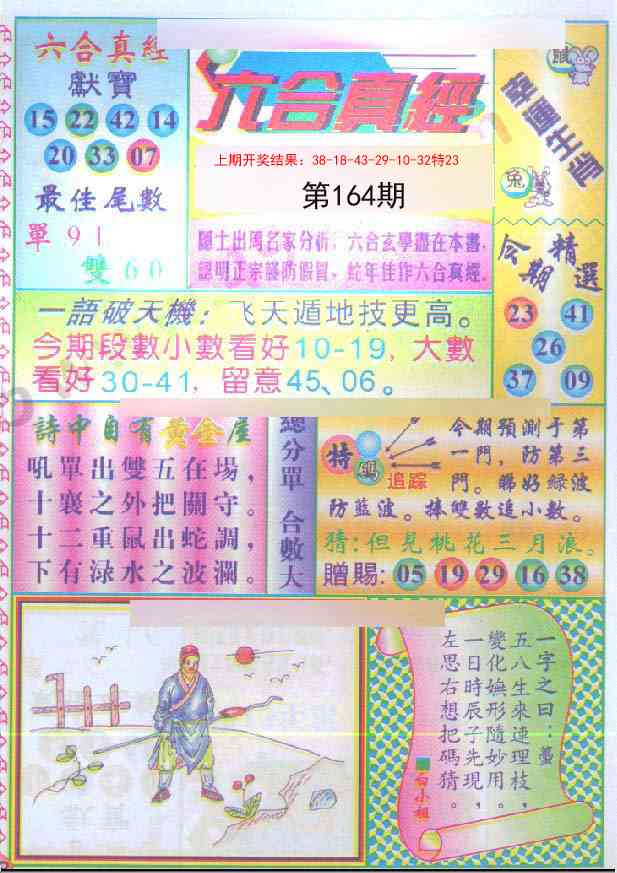 六合真經
獻寶
15 22 42 14
20 33 07
最佳尾數
單91
雙60
六合真經
上期开奖结果: 38-18-43-29-10-32特23
第164期
隱士出周名家分析,六合玄學盡在本書,
認明正宗謹防假冒,蛇年佳作六合真經.
鼠
幸運生肖
兔
今期精選
23 41
26
37 09
一語破天機:飞天遁地技更高。
今期段數小數看好10-19,大數
看好30-41,留意45、06。
詩中自有黃金屋
吼單出雙五在場,
十裏之外把關守。
十二重鼠出蛇調,
下有渌水之波瀾。
總分單 合數大
特碼
追踪
今期預測于第
一門,防第三
門。睇好綠波
防藍波。捧雙數追小數。
猜:但見桃花三月浪。
贈賜: 05 19 29 16 38
一字之曰:
五八生來連理枝,
變化無形隨妙用,
一日時辰子先現,
左思右想把碼猜。
白小姐